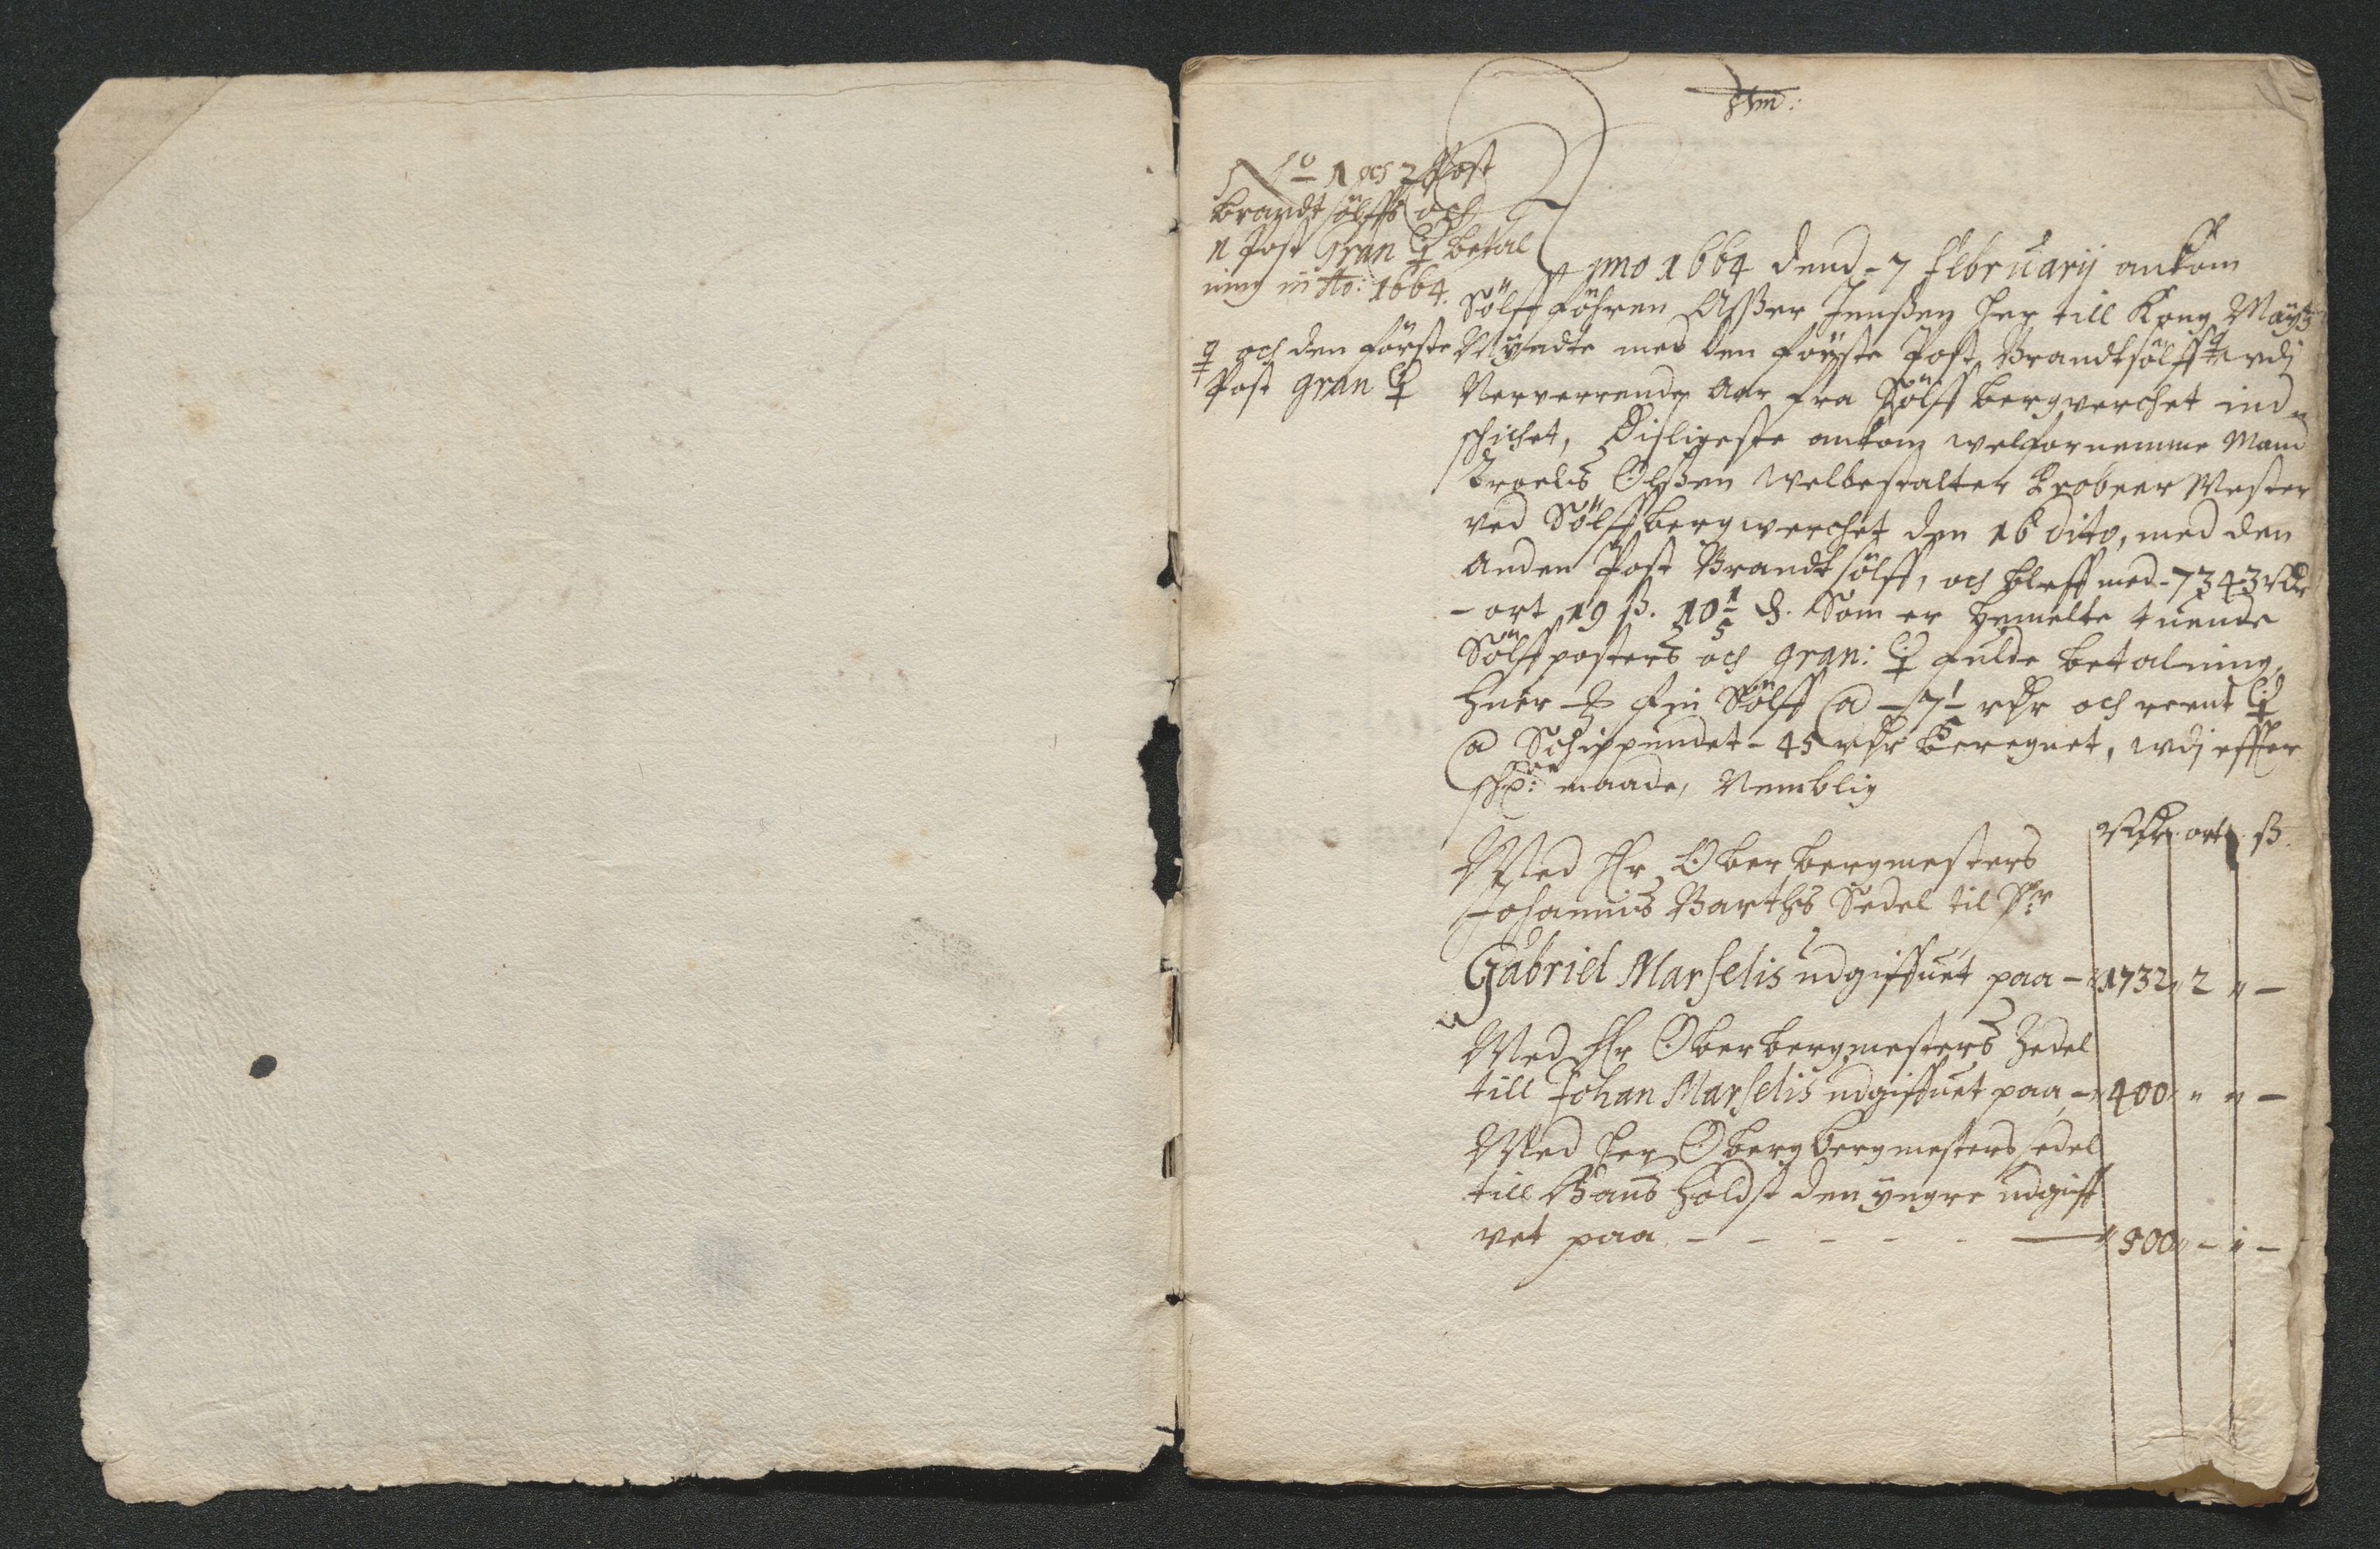 No 1 och 2 Post
brandt sölff och
1 Post Gran ♀ betal
ning in Ao: 1664.
♀ och den förste
Post gran ♀
Anno 1664 dend 7 februarij ankom
Sölff föhren Asser Jenßen her till Kong Maytz
Myndte med den föyste Post Brandtsölff udj
Nerverrende Aar fra Sölff bergverchet ind¬
schichet, Disligeste ankom welfornemme Mand
Troels Olßen welbestalter Probeer Mester
ved Sölffbergwerchet den 16 dito, med den
anden Post Brandtsölff, och bleff med 7343 Rdr
- ort 19 ß. 10 1/5 d. Som er bemelte tuende
Sölffposters och gran: ♀ fulde betalning,
huer fin Sölff a 7 1/2 rdr och reent ♀
a Schippundet 45 rdr beregnet, udj effter
schr: maade, Nemblig
Rdr. ort. ß.
Med Hr Oberbergmesters
Johannis Barths Sedel til Hr
Gabriel Marselis udgiffuet paa - 1732 " 2 " -
Med Hr Oberbergmesters Zedel
till Johan Marselis udgiffuet paa - 400 " " -
Med her Oberg bergmesters sedel
till Hans Holdst den yngre udgiff
vet paa - - - - - 500 " - " -